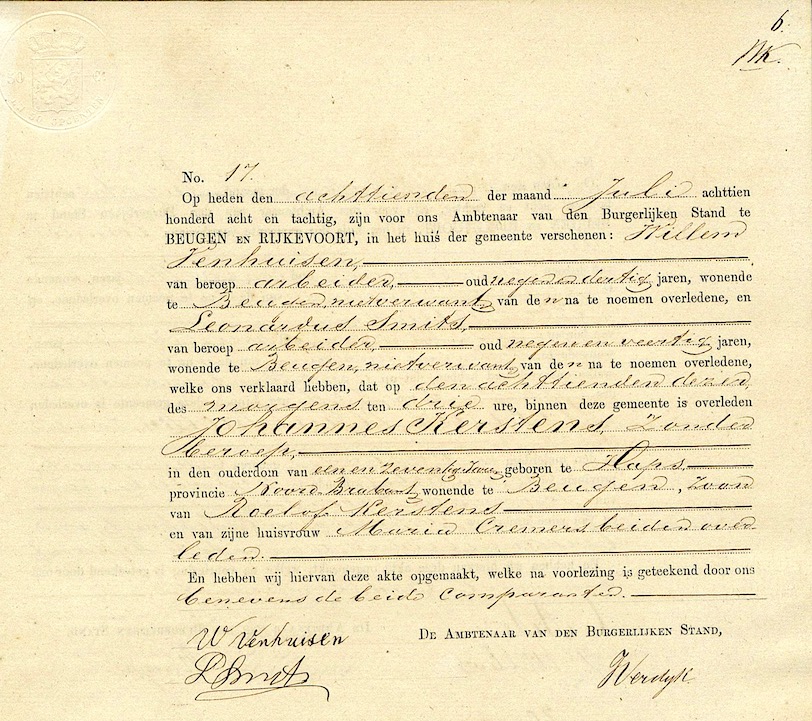 6.
No. 17.
Op heden den achttienden der maand Juli achttien
honderd acht en tachtig, zijn voor ons Ambtenaar van den Burgerlijken Stand te
BEUGEN EN RIJKEVOORT, in het huis der gemeente verschenen: Willem
Venhuisen,
van beroep arbeider, oud negen en dertig jaren, wonende
te Beugen, nietverwant van den na te noemen overledene, en
Leonardus Smits,
van beroep arbeider, oud negen en veertig jaren,
wonende te Beugen, nietverwant van den na te noemen overledene,
welke ons verklaard hebben, dat op den achttienden dezer
des morgens ten drie ure, binnen deze gemeente is overleden
Johannes Kerstens, zonder
beroep,
in den ouderdom van een en zeventig jaren, geboren te Haps
provincie Noord Brabant, wonende te Beugen, Zoon
van Roelof Kerstens
en van zijne huisvrouw Maria Cremers beiden over
leden.
En hebben wij hiervan deze akte opgemaakt, welke na voorlezing is geteekend door ons
benevens de beide comparanten.
W Venhuisen
DE AMBTENAAR VAN DEN BURGERLIJKEN STAND,
L Smits
Werdyk